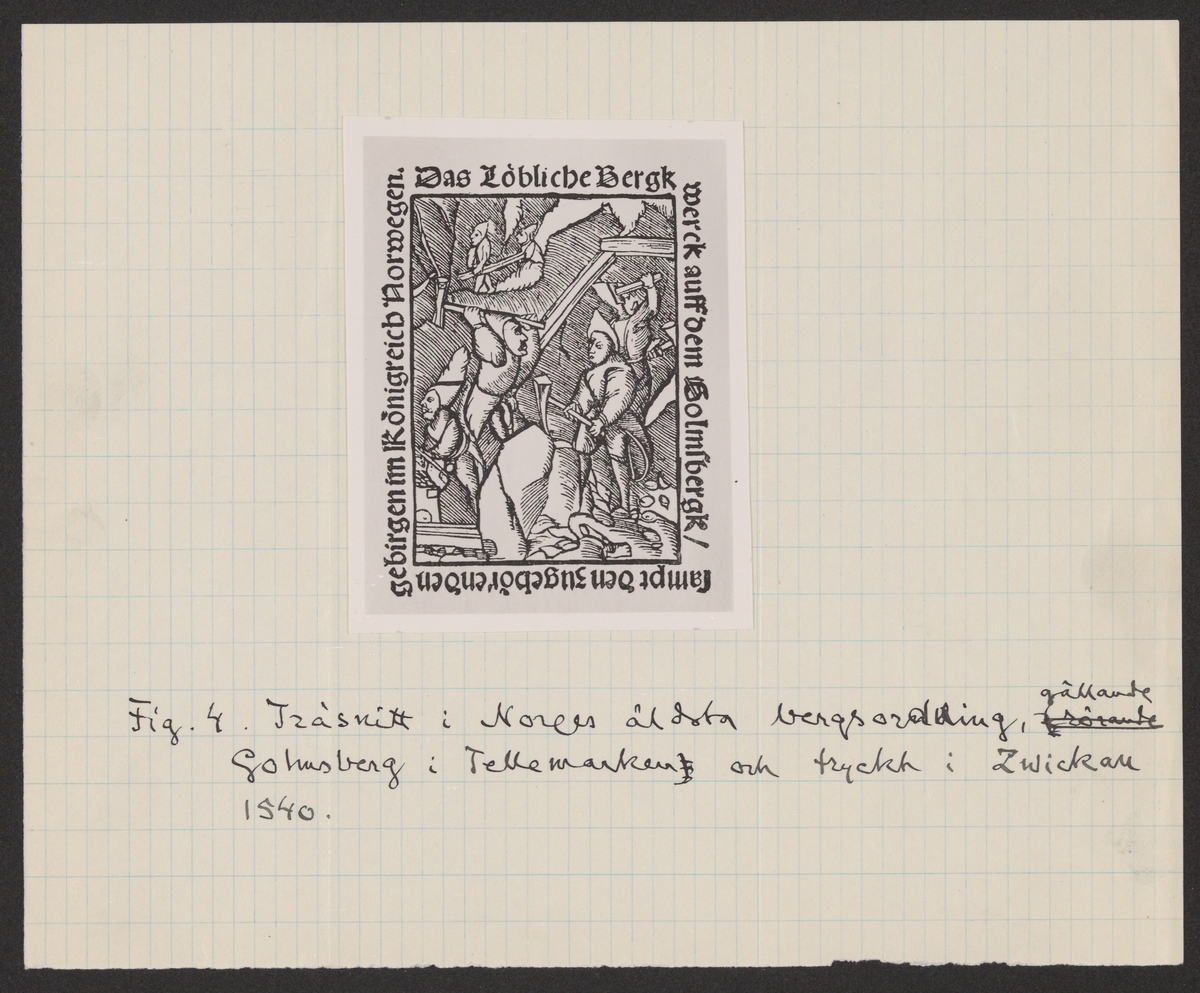 Das Löbliche Bergk
werck auff dem Golmsbergk /
sampt den zugehörenden
gebirgen im Königreich Norwegen.
gällande
Fig. 4. Träsnitt i Norges äldsta bergsordning, rörande
Golmsberg i Tellemarken och tryckt i Zwickau
1540.